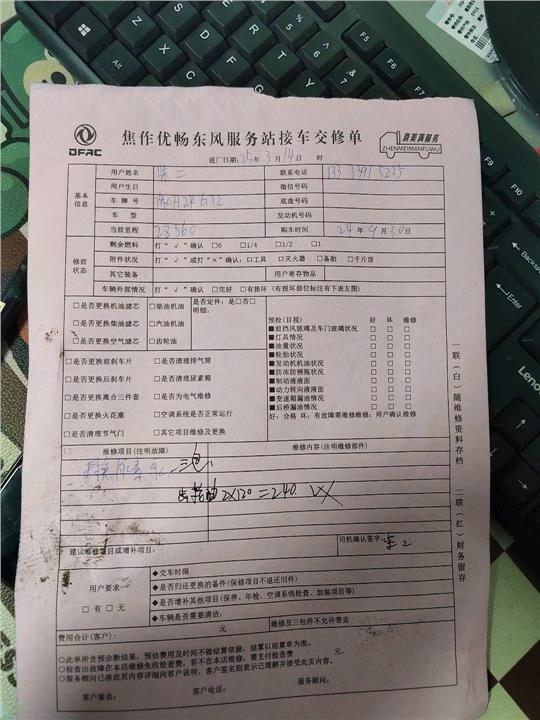 DFAC
焦作优畅东风服务站接车交修单
真美满服务
ZHENMEIMANFUWU
进厂日期:25年3月14日 时
基本信息
用户姓名 联系电话
用户生日 微信号码
车牌号 底盘号码
车型 发动机号码
当前里程 23560 购车时间 24年9月30日
修前状态
剩余燃料 打“√”确认 □0 □1/4 □1/2 □1
附件状况 打“√”或打“×”确认:□工具 □灭火器 □备胎 □千斤顶
其它装备 用户寄存物品
车辆外部情况 打“√”确认 □完好 □有损坏(有损坏部位标注有下表左图)
□是否更换机油滤芯 □柴油机油 是否定件:是□否□
明细:
□是否更换柴油滤芯 □汽油机油
□是否更换空气滤芯 □齿轮油
□是否更换前刹车片 □是否清理排气筒
□是否更换后刹车片 □是否清理尿素箱
□是否更换离合三件套 □是否为电气维修
□是否更换火花塞 □空调系统是否正常运行
□是否清理节气门 □其它项目维修及更换
预检(目视) 好 坏 维修
■前挡风玻璃及车门玻璃状况 □ □ □
■灯具情况 □ □ □
■油量状况 □ □ □
■轮胎状况 □ □ □
■发动机机油状况 □ □ □
■防冻防锈瓶状况 □ □ □
■制动液液面 □ □ □
■动力转向液液面 □ □ □
■变速箱漏油情况 □ □ □
■后桥漏油情况 □ □ □
好:合格 坏:有故障需维修维修:用户确认维修
报修项目(注明故障) 维修内容(注明维修部件)
三包
齿轮油 2X120=240.
建议维修项目或增补项目: 司机确认签字:
用户要求
□有 □无
◆交车时限
◆是否归还更换的备件(保修项目不退还旧件)
◆是否增补其他项目(保养、年检、空调系统检查、加装项目等)
◆车辆是否需要清洁:
费用合计(客户): 元 维修及三包件不允许带走
○此单所含预诊断结果,预估费用及时间不做结算依据,结算以结算单为准。
○检查出故障在本店维修免收检查费,若不在本店维修,需支付检查费 元。
○服务顾问已将此页内容详细向客户说明,客户签名则表示已理解并接受此页内容。
客户签名: 客户电话: 服务顾问:
一联(白)随维修资料存档
二联(红)财务留存
Alt
Enter
Lenovo
F5
F6
F7
F8
F9
F10